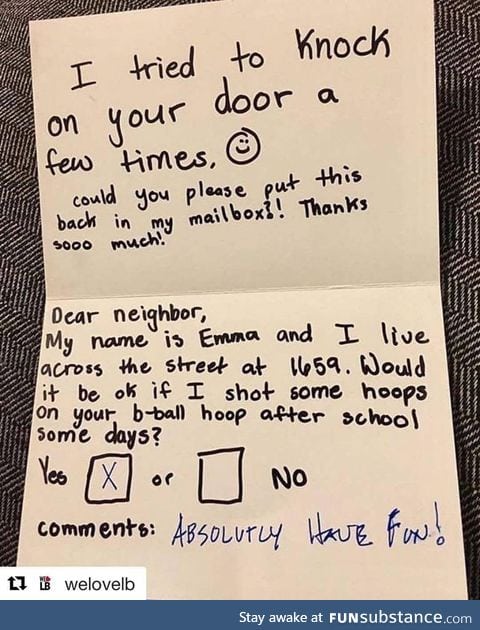 I tried to Knock
on your door a
few times.
could you please put this
back in my mailbox?! Thanks
sooo much!
Dear neighbor,
My name is Emma and I live
across the street at 1659. Would
it be ok if I shot some hoops
on your b-ball hoop after school
some days?
Yes X or NO
comments: ABSOLUTLY HAVE FUN!
WE LB welovelb
Stay awake at FUNsubstance.com